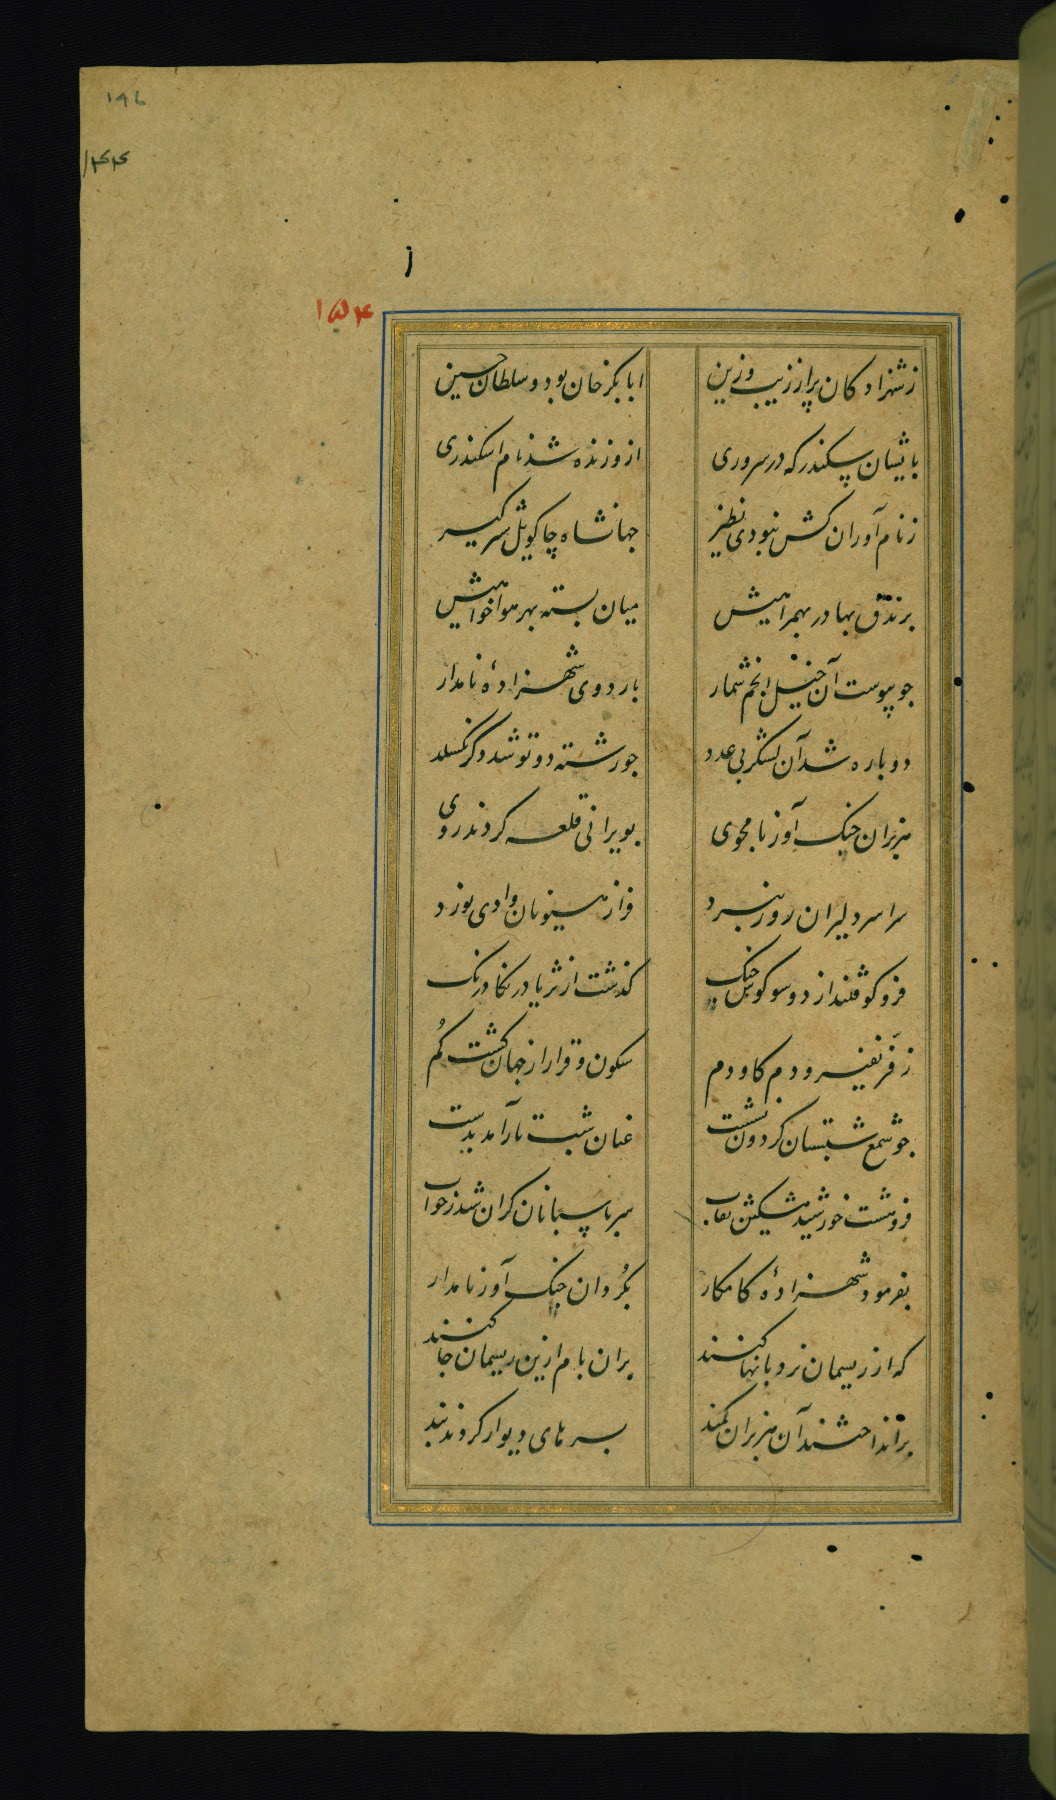 ۱۹۶
۱۴۴
۱۵۴
زشهزادکان پر از زیب و زین ابابکر خان بود و سلطان حسین
بایشان سکندر که در سروری ازو زنده شد نام اسکندری
زنام آوران کش نبودی نظیر جهانشاه چاکو یل شیر کیر
برندق بهادر بهمراهیش میان بسته بهر هواخواهیش
جو پیوست آن خیل انجم شمار باردوی شهزادهٔ نامدار
دوباره شد آن لشکر بی عدد جو رشته دو تو شد دکر نکسلد
هزبران جنک آور نامجوی بویرانی قلعه کردند روی
سراسر دلیران روز نبرد فراز هیونان وادی نورد
فرو کوفتند از دو سو کوس جنک کذشت از ثریا درنکا درنک
زفر نفیر و دم کاو دم سکون و قرار از جهان کشت کم
جو شمع شبستان کردون نشست عنان شب تار آمد بدست
فروهشت خورشید مشکین نقاب سر پاسبانان کران شد زخواب
بفرمود شهزادهٔ کامکار بکردان جنک آور نامدار
که از ریسمان نردبانها کنند بران بام ازین ریسمان جا کنند
برانداختند آن هزبران کمند بسر های دیوار کردند بند